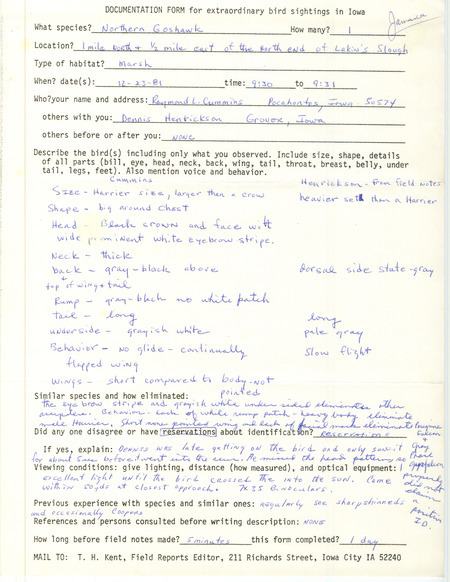 DOCUMENTATION FORM for extraordinary bird sightings in Iowa
Jamaica
What species? Northern Goshawk How many? 1
Location? 1 mile North + 1/2 mile east of the North end of Lakin's Slough
Type of habitat? Marsh
When? date(s): 12-23-81 time: 9:30 to 9:31
Who?your name and address: Raymond L. Cummins Pocahontas, Iowa 50574
others with you: Dennis Henrickson Grover, Iowa
others before or after you: NONE
Describe the bird(s) including only what you observed. Include size, shape, details
of all parts (bill, eye, head, neck, back, wing, tail, throat, breast, belly, under
tail, legs, feet). Also mention voice and behavior.
Cummins Henrickson - from field notes
Size - Harrier size, larger than a crow heavier set than a Harrier
Shape - big around chest
Head - Black crown and face with
wide prominent white eyebrow stripe.
Neck - thick
back - gray-black above dorsal side slate-gray
+ top of wing + tail
Rump - gray-black no white patch
tail - long long
underside - grayish white pale gray
Behavior - no glide - continually slow flight
flapped wing
Wings - short compared to body - not
pointed
Similar species and how eliminated:
the eyebrow stripe and grayish white under sides eliminates other
accipiters. Behavior - lack of white rump patch - heavy body eliminate
male Harrier, Short non pointed wings and lack of facial marks eliminate
Did any one disagree or have reservations about identification? reservations
If yes, explain: Dennis was late getting on the bird and only saw it
for about
Viewing conditions: give lighting, distance (how measured), and optical equipment:
excellent light until the bird crossed the into the sun. Came
within 50 yds at closest approach. 7x35 Binoculars.
Previous experience with species and similar ones: regularly see sharpshinneds
and occasionally Coopers
References and persons consulted before writing description: NONE
How long before field notes made? 5 minutes this form completed? 1 day
MAIL TO: T. H. Kent, Field Reports Editor, 211 Richards Street, Iowa City IA 52240